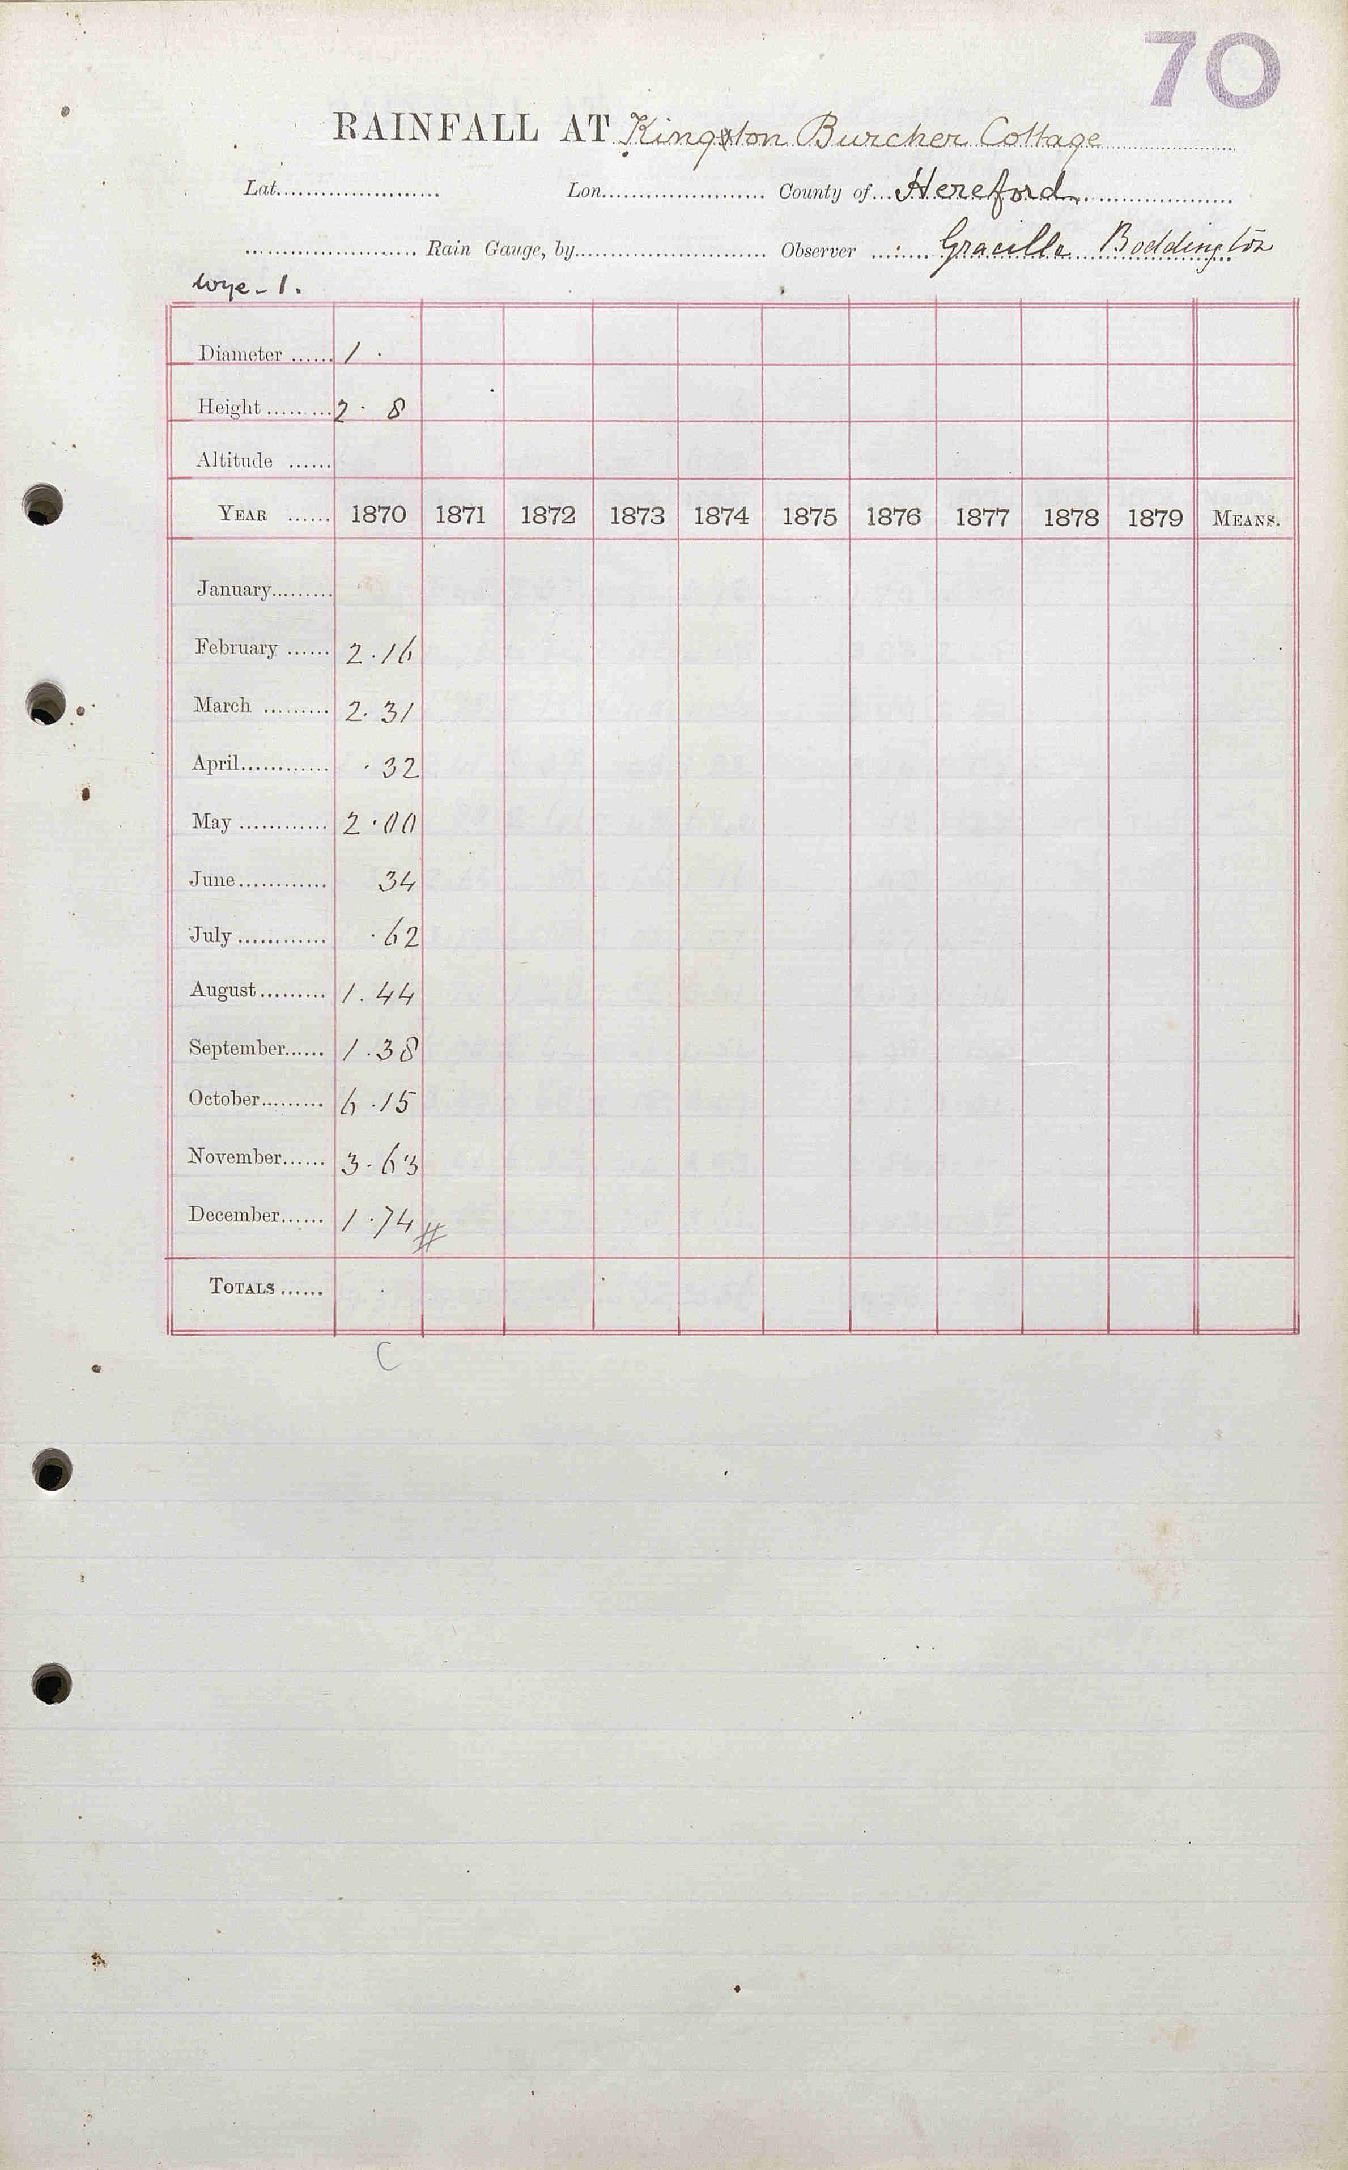 70
RAINFALL AT Kingston Burcher Cottage
Lat. Lon. County of Hereford
Rain Gauge, by Observer Gracilla Boddington
Wye - 1.
Diameter 1 ·
Height 2 · 8
Altitude
YEAR 1870 1871 1872 1873 1874 1875 1876 1877 1878 1879 MEANS.
January
February 2.16
March 2.31
April .32
May 2.00
June 34
July .62
August 1.44
September 1.38
October 6.15
November 3.63
December 1.74 #
TOTALS
C